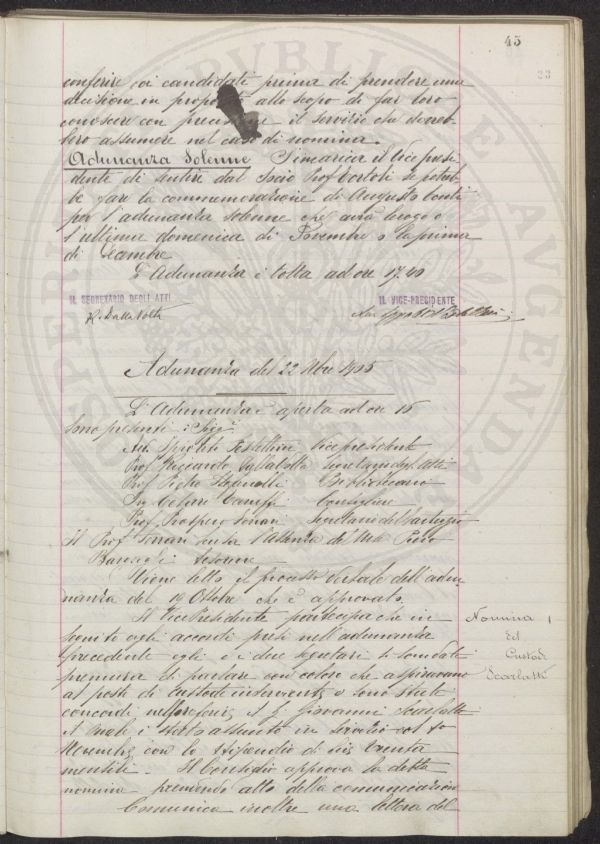 45
33
conferire coi candidati prima di prendere una
decisione in proposito allo scopo di far loro
conoscere con precisione il servizio che dovreb-
bero assumere nel caso di nomina.
Adunanza Solenne Si incarica il Vice presi-
dente di sentire dal Socio Prof. Bortoli se potreb-
be fare la commemorazione di Augusto Conti
per l'adunanza solenne che avrà luogo o
l'ultima domenica di Novembre o la prima
di Dicembre
L'Adunanza è tolta ad ore 17.40
IL SEGRETARIO DEGLI ATTI
IL VICE-PRESIDENTE
R. Dalla Volta
Adunanza del 22 Nbre 1905
L'Adunanza è aperta ad ore 16
Sono presenti i Sigg.
Av. Vicepresidente
Prof. Riccardo Dalla Volta Segretario degli Atti
Prof. Pietro Bibliotecario
Ing. Cesare Consigliere
Prof. Prospero Ferrari Segretario dell'
Il Prof. Ferrari scusa l'assenza del
Tesoriere
Viene letto il processo verbale dell'adu-
nanza del 19 Ottobre che è approvato.
Il Vice Presidente partecipa che in
seguito agli accordi presi nell'adunanza
precedente egli e i due segretari si sono dati
premura di parlare con coloro che aspiravano
al posto di Custode inserviente e sono stati
concordi nel preferire il S. Giovanni Scarlatti
il quale è stato assunto in servizio col
Novembre con lo stipendio di lire trenta
mensili. Il Consiglio approva la detta
nomina prendendo atto della comunicazione
Nomina
del
Custode
Scarlatti
Comunica inoltre una lettera del